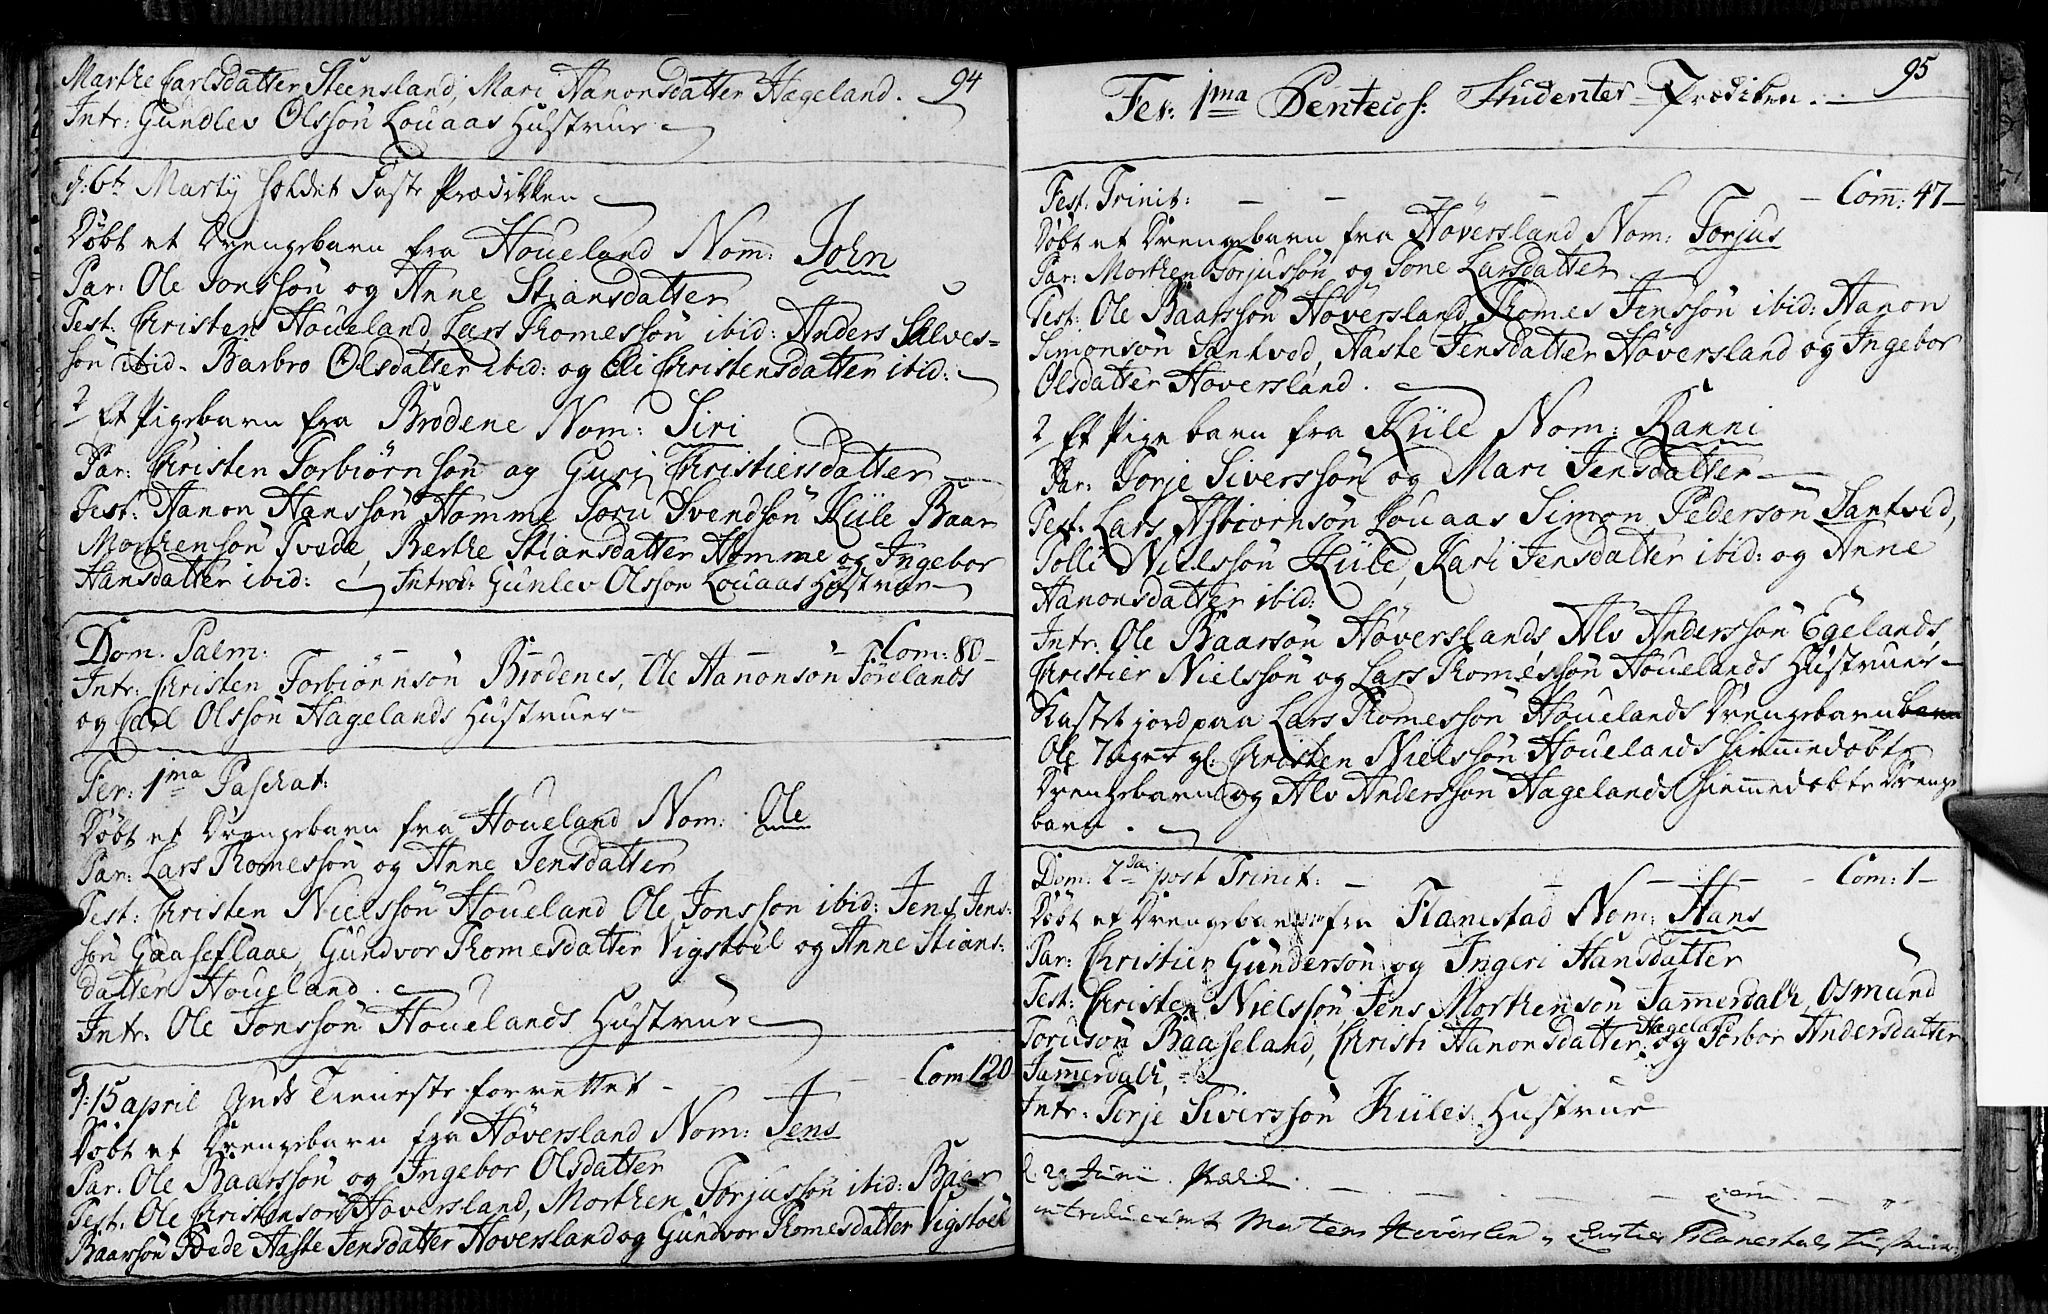 Marthe Carlsdatter Steensland, Mari Hanonsdatter Hægeland. 94
Intr: Gundlev Olssøn Louaas Hustrue
d: 6te Martij holdet Faste Prædikken
Døbt et Drengebarn fra Houeland Nom: John
Par: Ole Jonssøn og Anne Stiansdatter
Test: Christen Houeland, Lars Thomessøn ibid: Anders Salves=
søn ibid. Barbro Olsdatter ibid: og Eli Christensdatter ibid:
2 Et Pigebarn fra Brødene Nom: Siri
Par: Christen Torbiørnsøn og Guri Christiersdatter
Test: Hanon Hanssøn Homme Toru Svendsøn Kiile Baar
Morthensøn Tvede, Berthe Stiansdatter Homme og Ingebor
Hansdatter ibid: Introd: Gunlev Olssøn Louaas Hustrue
Dom. Palm: Com: 80
Intr: Christen Torbiørnsøn Brødenes, Ole Hanonsøn Førelands
og Carl Olssøn Hægelands Hustruer
Fer: 1ma Paschat:
Døbt et Drengebarn fra Houeland Nom: Ole
Par: Lars Thomessøn og Anne Jensdatter
Test: Christen Nielssøn Houeland Ole Jonssøn ibid: Jens Jens:
søn Gaaseflaae, Gundvor Thomesdatter Vigstøel og Anne Stians:
datter Houeland.
Intr: Ole Jonssøn Houelands Hustrue
d: 15 april Guds Tieniste forrettet Com 120
Døbt et Drengebarn fra Høversland Nom: Jens
Par: Ole Baarssøn og Ingebor Olsdatter
Test: Ole Christensøn Høversland, Morthen Torjussøn ibid: Baar
Baarsøn Haste Jensdatter Høversland og Gundvor Thomesdatter Vigstøel
95
Fer: 1ma Pentecos: Studenter Prædiken.
Fest: Trinit: Com: 47
Døbt et Drengebarn fra Høversland Nom: Torjus
Par: Morthen Torjussøn og Tone Larsdatter
Test: Ole Baarssøn Høversland, Thomes Jenssøn ibid: Hanon
Simonsøn Santved, Haste Jensdatter Høversland og Ingebor
Olsdatter Høversland.
2 Et Pigebarn fra Kiile Nom: Ranni
Par: Torje Siverssøn og Mari Jensdatter
Test: Lars Asbiornsøn Louaas Simon Pedersøn Santved,
Tolli Nielssøn Kiile, Kari Jensdatter ibid: og Anne
Hanonsdatter ibid:
Intr: Ole Baarssøn Høverslands, Alv Anderssøn Egelands,
Christier Nielssøn og Lars Thomessøn Houelands Hustruer
Kastet jord paa Lars Thomessøn Houelands Drengebarn barn
Ole 7 uger gl: Christen Nielssøn Houelands hiemmedøbte
Drengebarn og Alv Anderssøn Hægelands hiemmedøbte Drenge
barn.
Dom: 2da post Trinit: Com: 1
Døbt et Drengebarn fra Flanestad Nom: Hans
Par: Christier Gundersøn og Ingeri Hansdatter
Test: Christen Nielssøn, Jens Morthensøn Jammerdalk, Osmund
Torusøn Baaseland, Christi Hanonsdatter Hægeland og Torbor Andersdatter
Jammerdalk,
Intr: Torje Siverssøn Kiiles Hustrue
d. 29 Junii. Prædik.
introduceret Mortens Høversland Christier Flanestads Hustruer